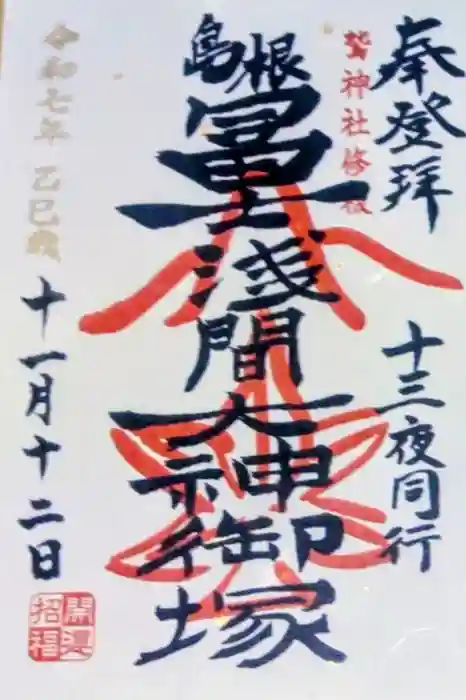 奉登拝
十三夜同行
鷲神社修祓
島根
冨士浅間大神御塚
令和七年 乙巳歳
十一月十二日
開運
招福